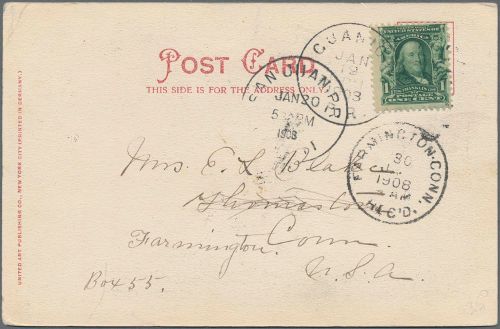 POST CARD.
THIS SIDE IS FOR THE ADDRESS ONLY
UNITED STATES OF AMERICA
FRANKLIN
1
POSTAGE
ONE CENT
GUANI
JAN
19
P.R.
SAN JUAN, P.R.
JAN 20
5 PM
1908
FARMINGTON, CONN.
30
1908
AM
REC'D.
Mrs. E. L. Blake
Thomaston
Farmington, Conn.
U.S.A.
Box 55.
UNITED ART PUBLISHING CO., NEW YORK CITY (PRINTED IN GERMANY.)